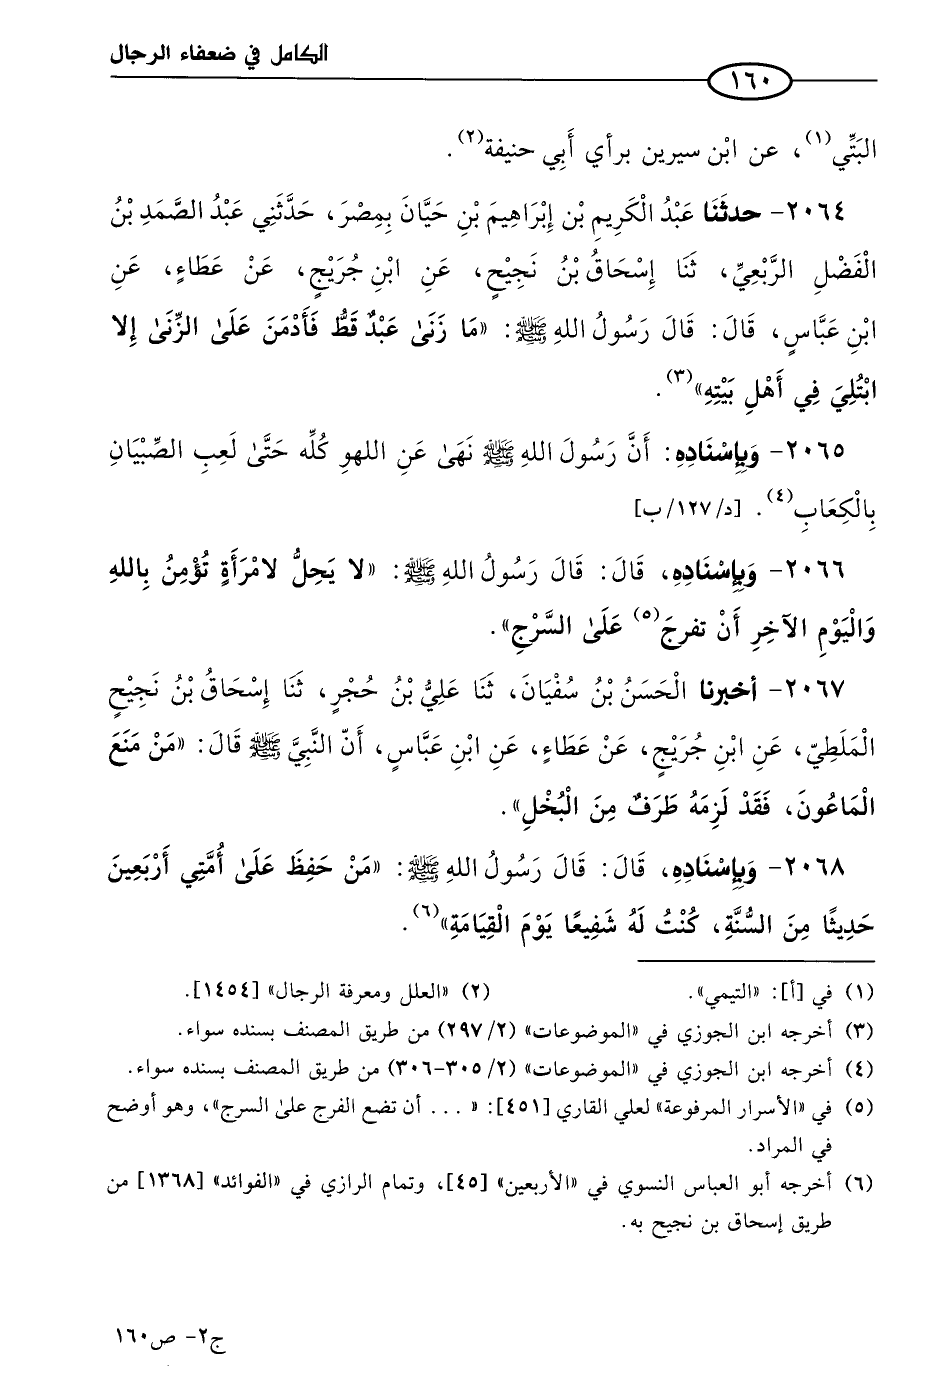 الكامل في ضعفاء الرجال
١٦٠
البَتِّي(١)، عن ابْن سيرين برأي أَبِي حنيفة(٢).
٢٠٦٤- حدثَنَا عَبْدُ الْكَرِيمِ بْن إِبْرَاهِيمَ بْنِ حَيَّانَ بِمِصْرَ، حَدَّثَنِي عَبْدُ الصَّمَدِ بْنُ
الْفَضْلِ الرَّبْعِيِّ، ثَنَا إِسْحَاقُ بْنُ نَجِيْحٍ، عَنِ ابْنِ جُرَيْجٍ، عَنْ عَطَاءٍ، عَنِ
ابْنِ عَبَّاسٍ، قَالَ: قَالَ رَسُولُ اللهِ ﷺ: «مَا زَنَىٰ عَبْدٌ قَطُّ فَأَدْمَنَ عَلَىٰ الزِّنَىٰ إِلا
ابْتُلِيَ فِي أَهْلِ بَيْتِهِ»(٣).
٢٠٦٥- وَبِإِسْنَادِهِ: أَنَّ رَسُولَ اللهِ ﷺ نَهَىٰ عَنِ اللهوِ كُلِّه حَتَّىٰ لَعِبِ الصِّبْيَانِ
بِالْكِعَابِ(٤). [د/١٢٧/ب]
٢٠٦٦- وَبِإِسْنَادِهِ، قَالَ: قَالَ رَسُولُ اللهِ ﷺ: «لا يَحِلُّ لامْرَأَةٍ تُؤْمِنُ بِاللهِ
وَالْيَوْمِ الآخِرِ أَنْ تفرجَ(٥) عَلَىٰ السَّرْجِ».
٢٠٦٧- أخبرنا الْحَسَنُ بْنُ سُفْيَانَ، ثَنَا عَلِيُّ بْنُ حُجْرٍ، ثَنَا إِسْحَاقُ بْنُ نَجِيْحٍ
الْمَلَطِيّ، عَنِ ابْنِ جُرَيْجٍ، عَنْ عَطَاءٍ، عَنِ ابْنِ عَبَّاسٍ، أَنّ النَّبِيَّ ﷺ قَالَ: «مَنْ مَنَعَ
الْمَاعُونَ، فَقَدْ لَزِمَهُ طَرَفٌ مِنَ الْبُخْلِ».
٢٠٦٨- وَبِإِسْنَادِهِ، قَالَ: قَالَ رَسُولُ اللهِ ﷺ: «مَنْ حَفِظَ عَلَىٰ أُمَّتِي أَرْبَعِينَ
حَدِيثًا مِنَ السُّنَّةِ، كُنْتُ لَهُ شَفِيعًا يَوْمَ الْقِيَامَةِ»(٦).
(١) في [أ]: «التيمي». (٢) «العلل ومعرفة الرجال» [١٤٥٤].
(٣) أخرجه ابن الجوزي في «الموضوعات» (٢/ ٢٩٧) من طريق المصنف بسنده سواء.
(٤) أخرجه ابن الجوزي في «الموضوعات» (٢/ ٣٠٥-٣٠٦) من طريق المصنف بسنده سواء.
(٥) في «الأسرار المرفوعة» لعلي القاري [٤٥١]: «... أن تضع الفرج علىٰ السرج»، وهو أوضح
في المراد.
(٦) أخرجه أبو العباس النسوي في «الأربعين» [٤٥]، وتمام الرازي في «الفوائد» [١٣٦٨] من
طريق إسحاق بن نجيح به.
ج٢- ص١٦٠